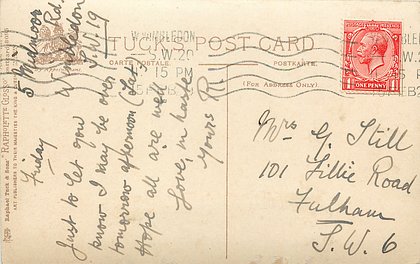 TUCK'S POST CARD
CARTE POSTALE.
POSTKARTE.
(FOR ADDRESS ONLY.)
WIMBLEDON
S.W.20
15 PM
FEB
POSTAGE
ONE PENNY
Raphael Tuck & Sons' "RAPHOTYPE"
ART PUBLISHERS TO THEIR MAJESTIES THE KING
Rd.
Wimbledon
S.W. 19
Friday
Just to let you
know I may be over
tomorrow afternoon (Sat.)
Hope all are well
Love, in haste
Yours
Mrs G. Still
101 Lillie Road
Fulham
S.W. 6